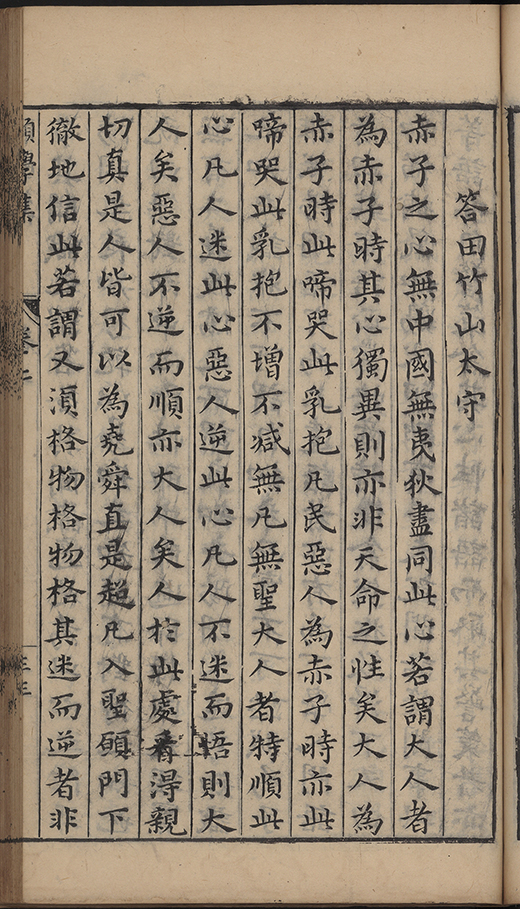 答田竹山太守
赤子之心無中國無夷狄盡同此心若謂大人者
為赤子時其心獨異則亦非天命之性矣大人為
赤子時此啼哭此乳抱凡民惡人為赤子時亦此
啼哭此乳抱不增不减無凡無聖大人者特順此
心凡人迷此心惡人逆此心凡人不迷而悟則大
人矣惡人不逆而順亦大人矣人於此處看得親
切真是人皆可以為堯舜直是超凡入聖願門下
徹地信此若謂又須格物格物格其迷而逆者非
學集
卷上